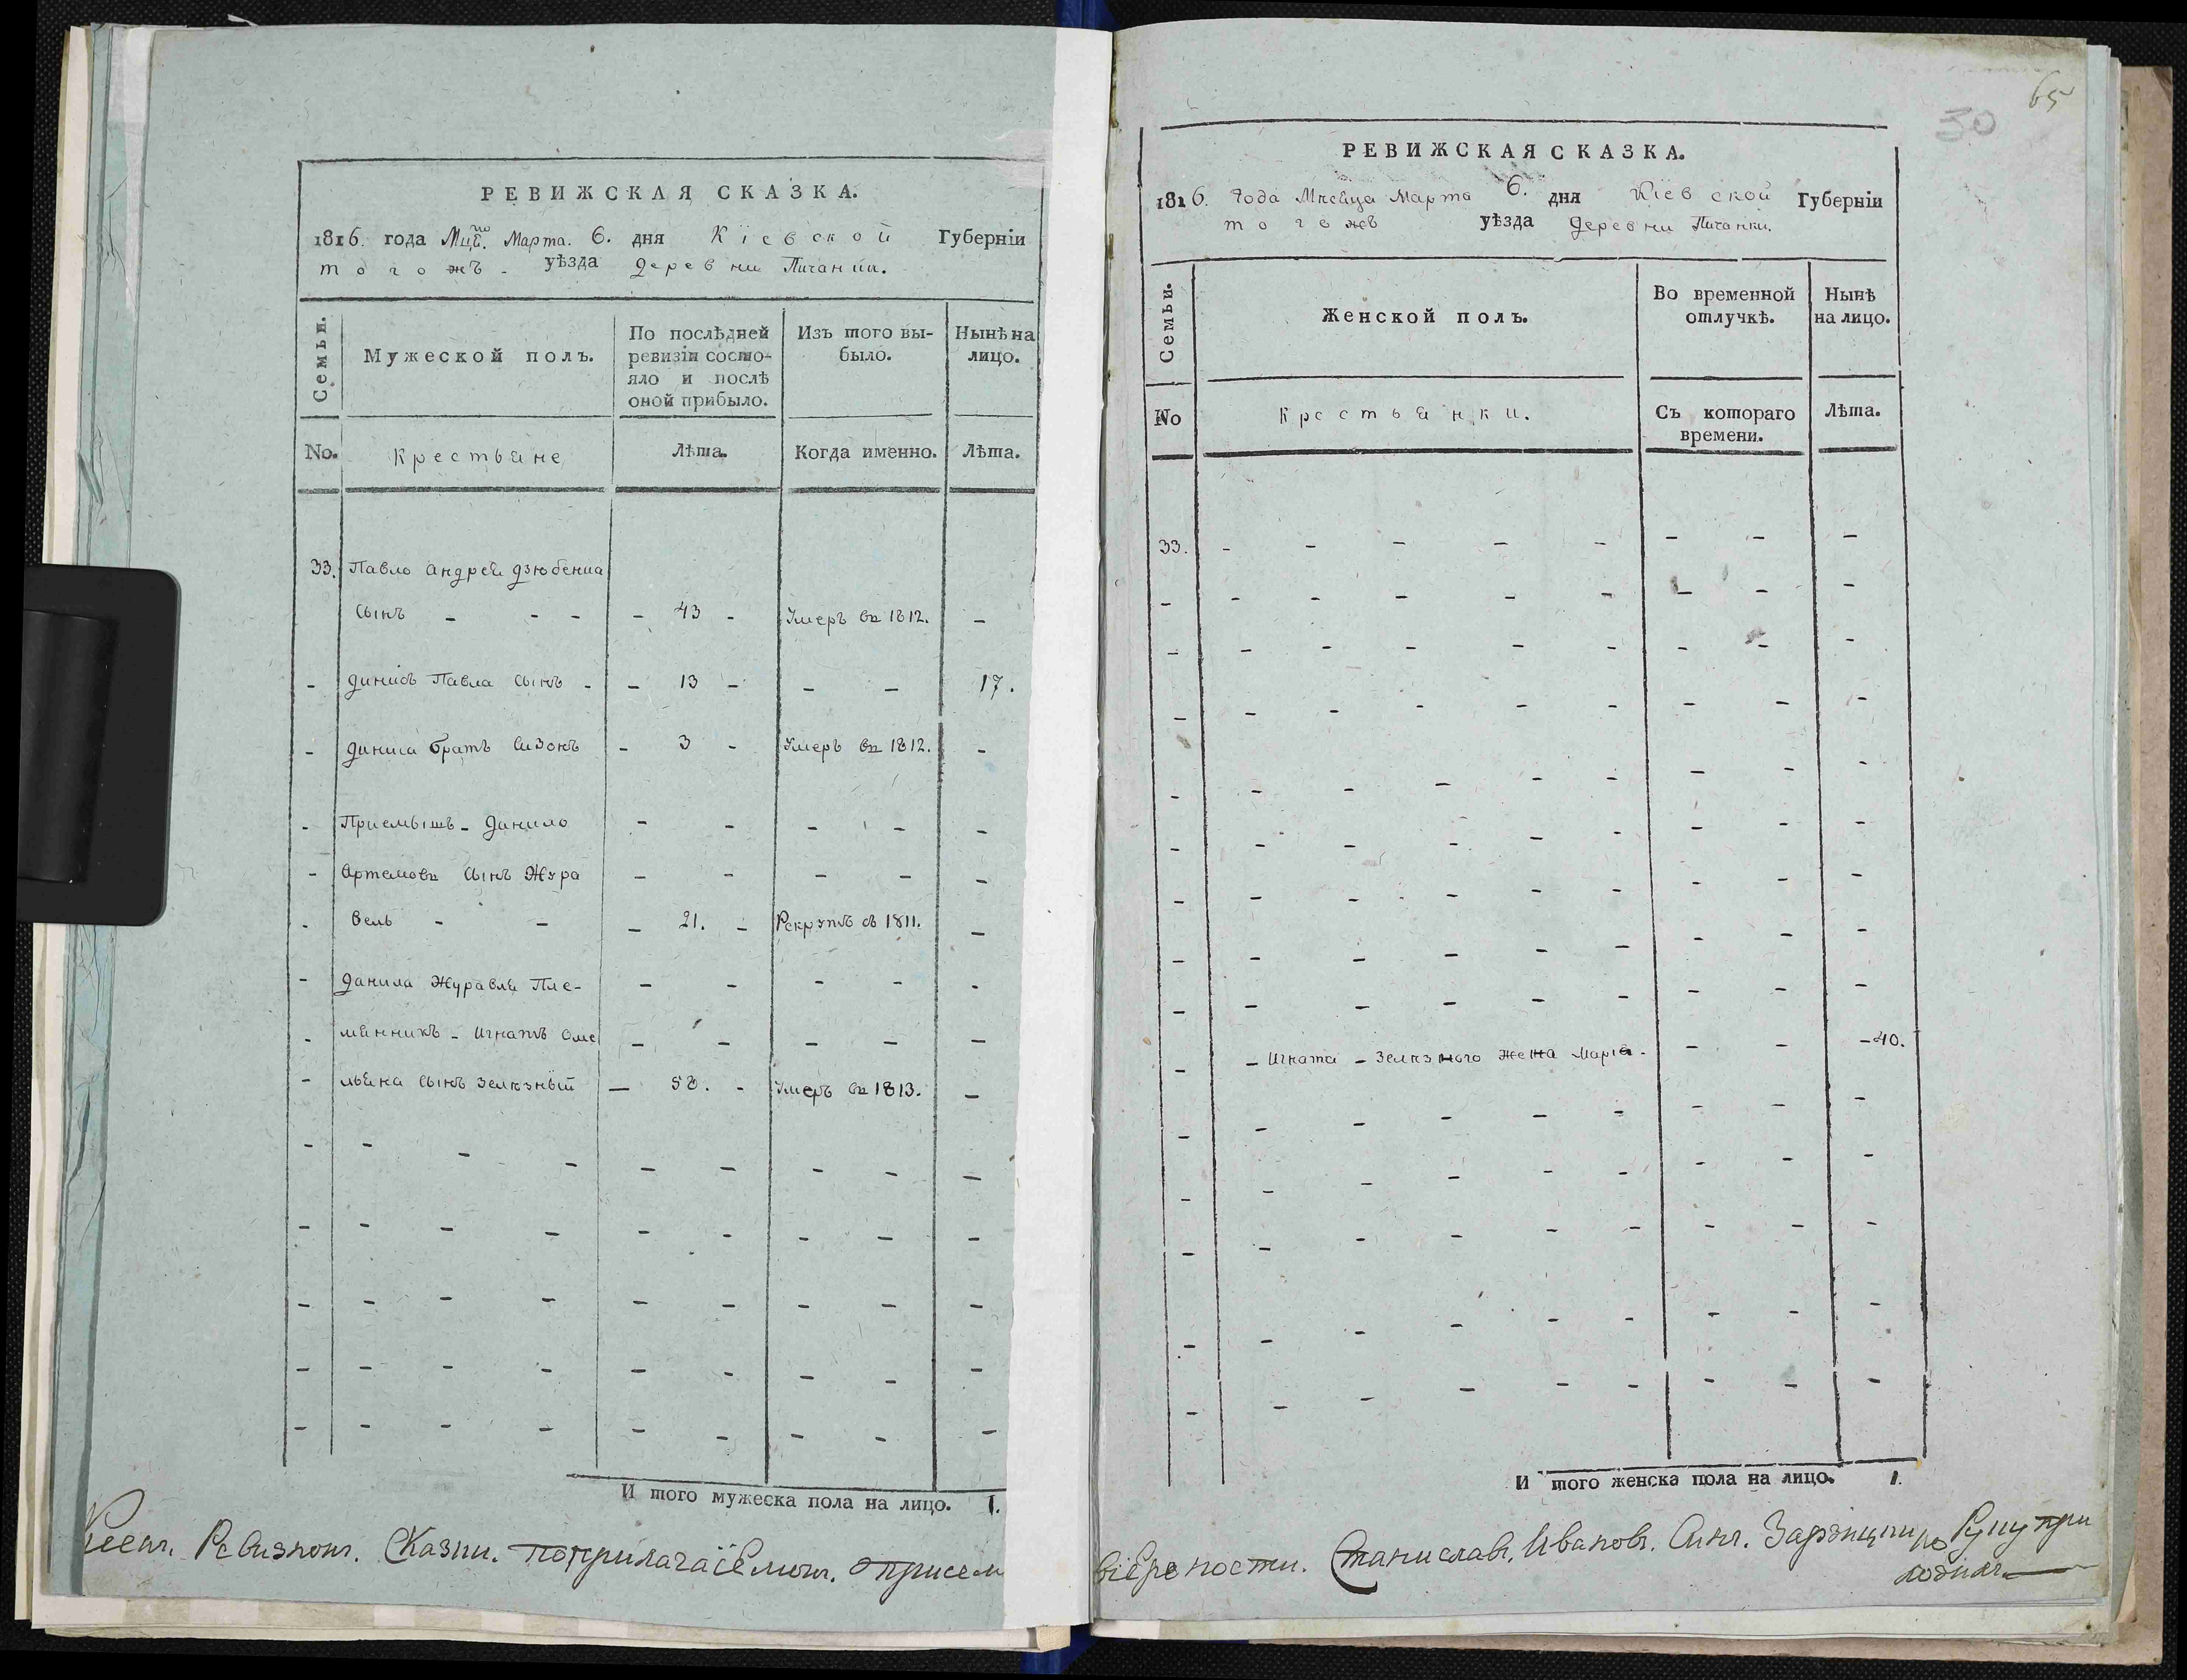 РЕВИЖСКАЯ СКАЗКА.
1816. года Мцā. Марта. 6. дня Кїевской Губернїи
тогожъ - уѣзда деревни Пичанки.
Семьи.
Мужеской полъ.
По послѣдней ревизїи состо-
яло и послѣ
оной прибыло.
Изъ того вы-
было.
Нынѣ на
лицо.
No.
Крестьяне
Лѣта.
Когда именно.
Лѣта.
33. Павло Андрея Дзюбенка
сынъ - - - - 43 - Умеръ въ 1812. -
- Динисъ Павла сынъ - - 13 - - - 17.
- Диниса братъ Сизонъ - 3 - Умеръ въ 1812. -
- Приемышъ - Данило - - - - -
- Артемовъ сынъ Жура - - - - -
- вель - - - 21. - Рекрутъ въ 1811. -
- Данила Журавля Пле- - - - - -
- мянникъ - Игнатъ Оме - - - - -
- льяна сынъ Зелѣзный - 58. - Умеръ въ 1813. -
И того мужеска пола на лицо. 1.
Ревизкои. Сказки.
65
30
РЕВИЖСКАЯ СКАЗКА.
1816. года Мѣсяца Марта 6. дня Кїевской Губернїи
тогожъ уѣзда деревни Пичанки.
Семьи.
Женской полъ.
Во временной
отлучкѣ.
Нынѣ
на лицо.
No
Крестьянки.
Съ котораго
времени.
Лѣта.
33. - - - - - - - -
- Игната - Зелѣзного жена Марїя - - - - 40.
И того женска пола на лицо. 1.
Станиславъ, Ивановъ. Сынъ. Руку при